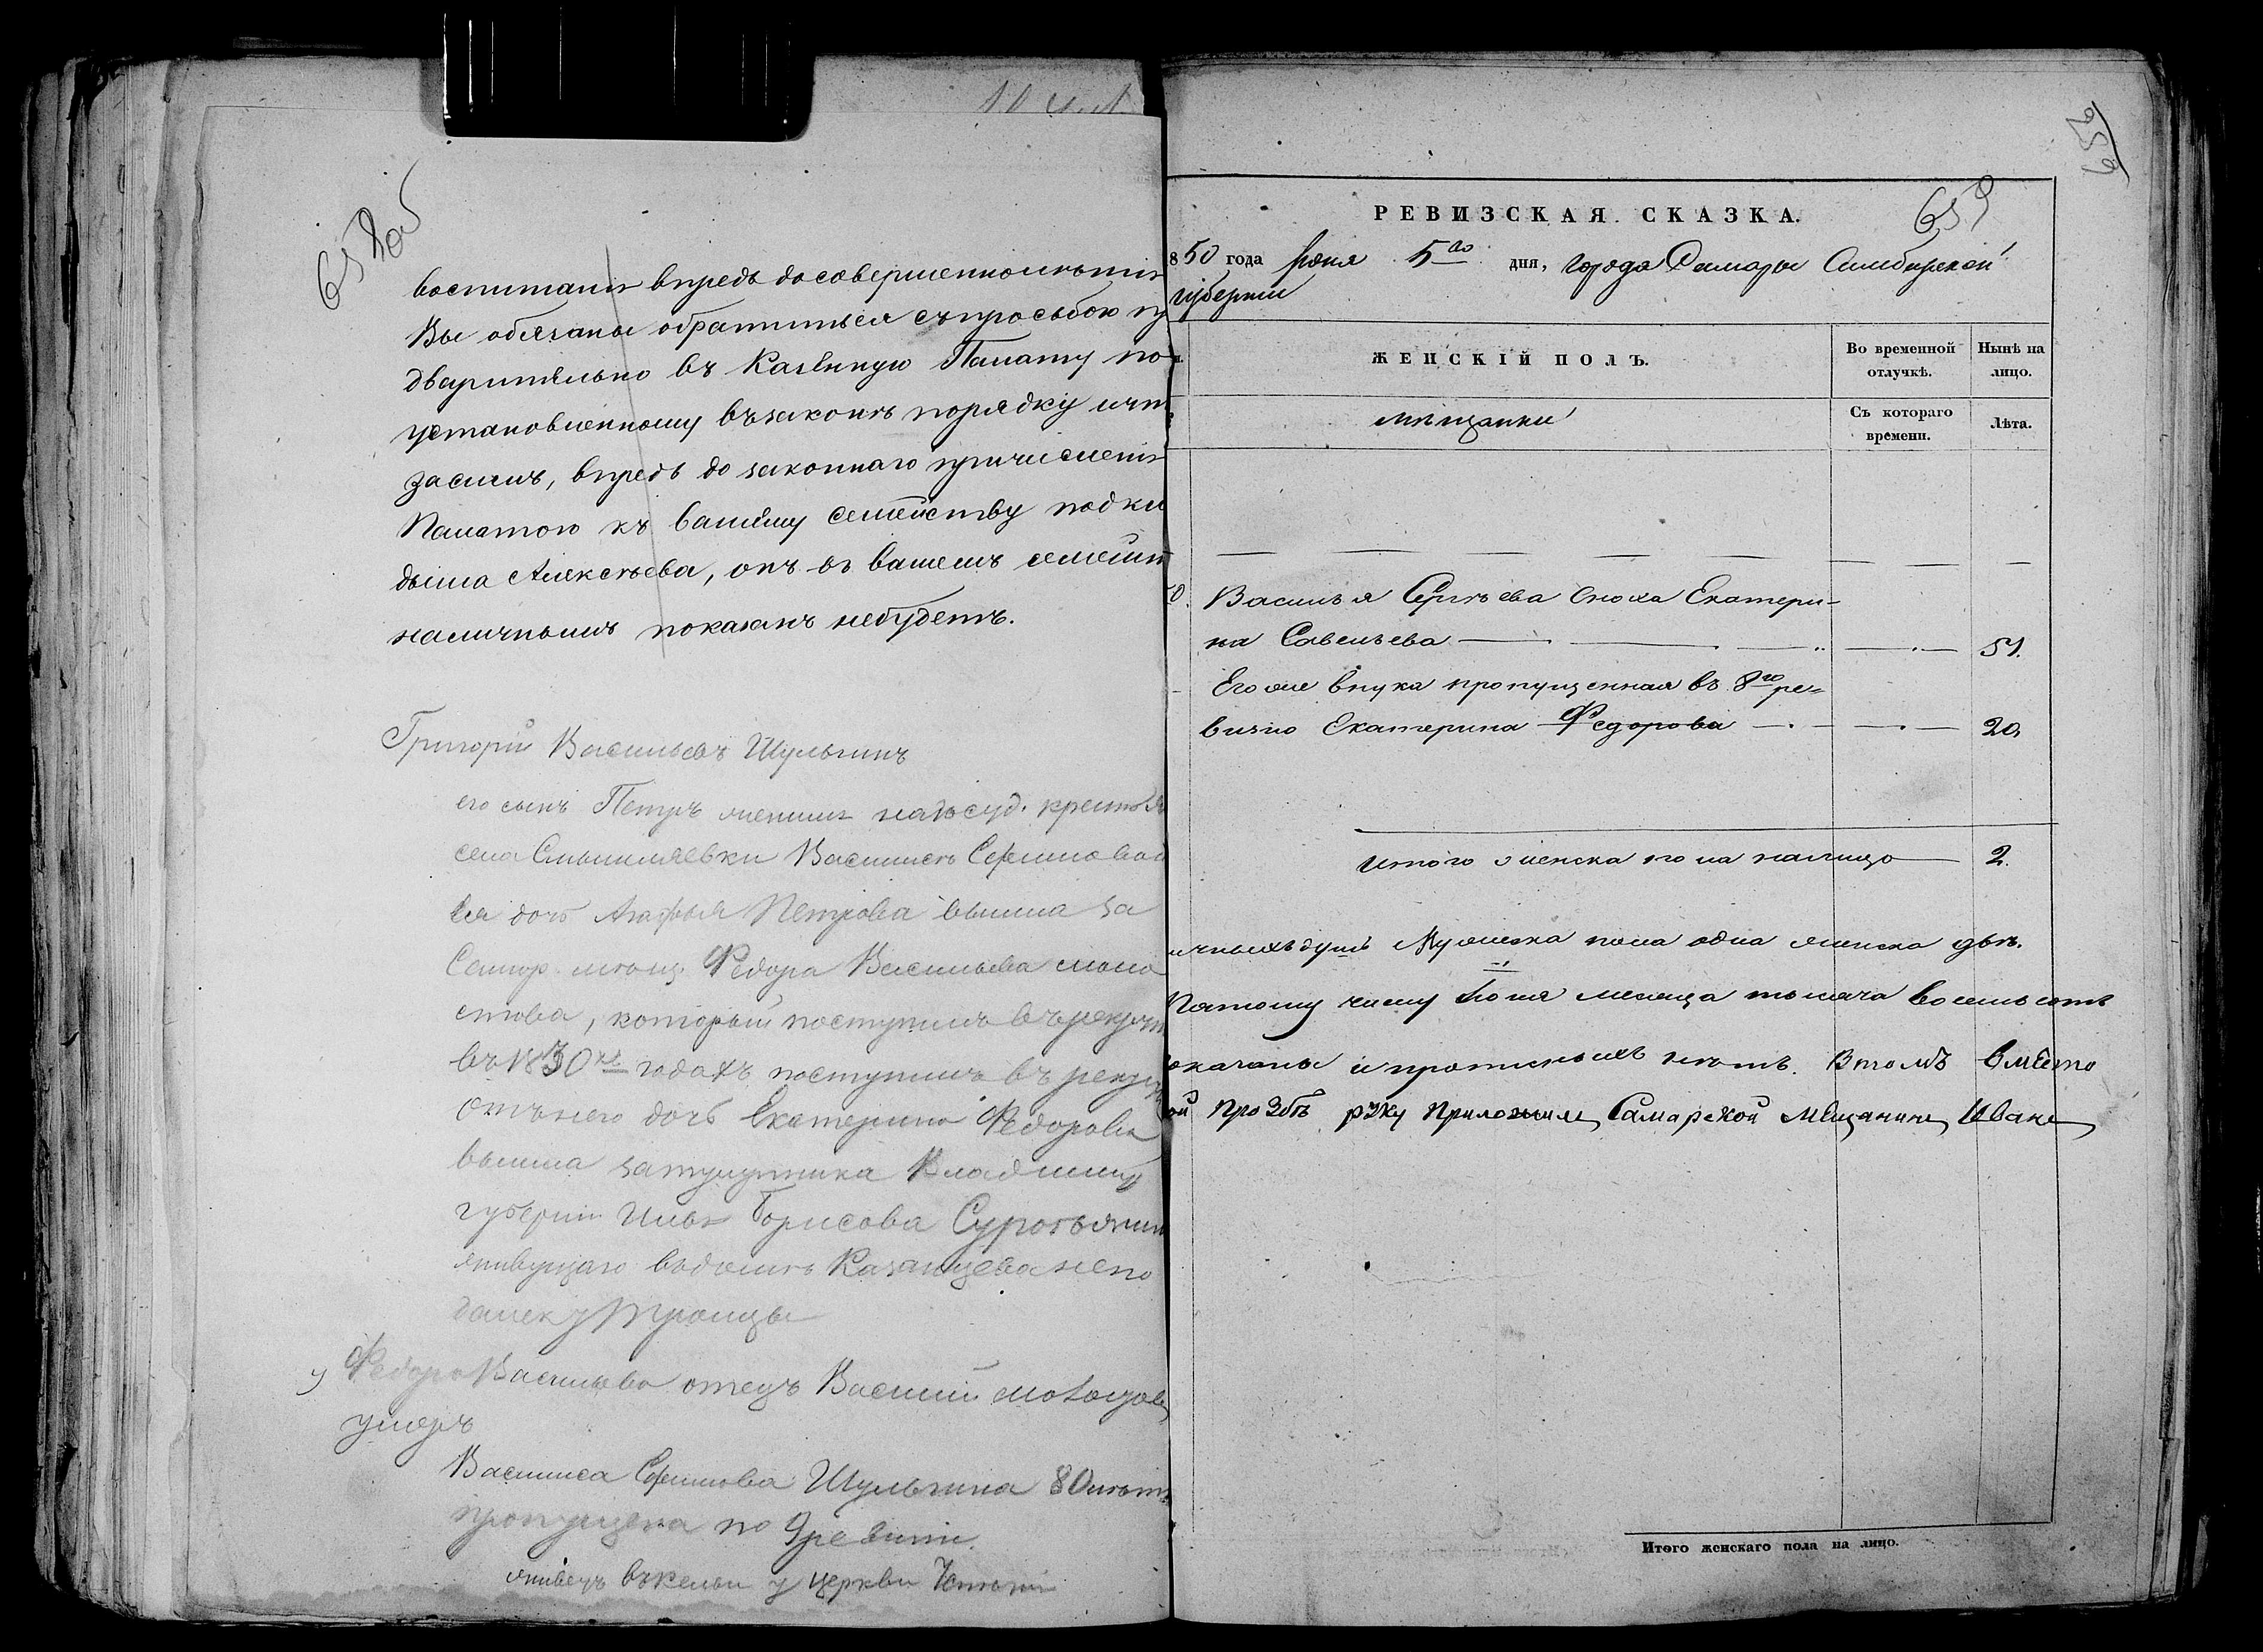 658об
воспитанія впредь до совершеннолѣтія
Вы обязаны обратиться съ просьбою пр
дварительно въ Казенную Палату по
установленному въ законѣ порядку и что
засимъ, впредь до законнаго причисленія
Палатою къ вашему семейству подки
дыша Алексѣева, онъ въ вашемъ семейст
наличнымъ показанъ небудетъ.
Григорій Васильевъ Шульгинъ
его сынъ Петръ женился на государ. крестья
села Смышляевки Василисѣ Ефимовой
Ея дочь Агафья Петрова вышла за
Самар. мѣщ. Федора Васильева
который поступилъ въ рекрут
въ 1830хъ годахъ поступилъ въ рекру
Отъ него дочь Екатерина Федорова
вышла за Владимир
губерніи Илью Борисова
живущаго въ домѣ Казанцева непо
далеку Троицы
у Федора Васильева отецъ Василий
умеръ
Василиса Ефимова Шульгина 80 лѣтъ
пропущена по 9 ревизіи
живетъ въ кельи у церкви
656
659
РЕВИЗСКАЯ СКАЗКА.
850 года Іюня 5го дня, города Самары Симбирской
губерніи
ЖЕНСКІЙ ПОЛЪ.
Во временной отлучкѣ.
Нынѣ на лицо.
мѣщанки
Съ котораго времени.
Лѣта.
Василья Сергѣева сноха Екатери-
на Савельева 51.
Его же внука пропущенная въ 8ю ре-
визію Екатерина Федорова 20.
Итого женска пола налицо 2.
ичныхъ душъ Мужеска пола одна женска двѣ.
Пятому числу Іюня месяца тысяча восемьсотъ
оказаны и прописныхъ нѣтъ. Втомъ вмѣсто
ой прозбѣ руку приложилъ Самарской мѣщанинъ Иванъ
Итого женскаго пола на лицо.